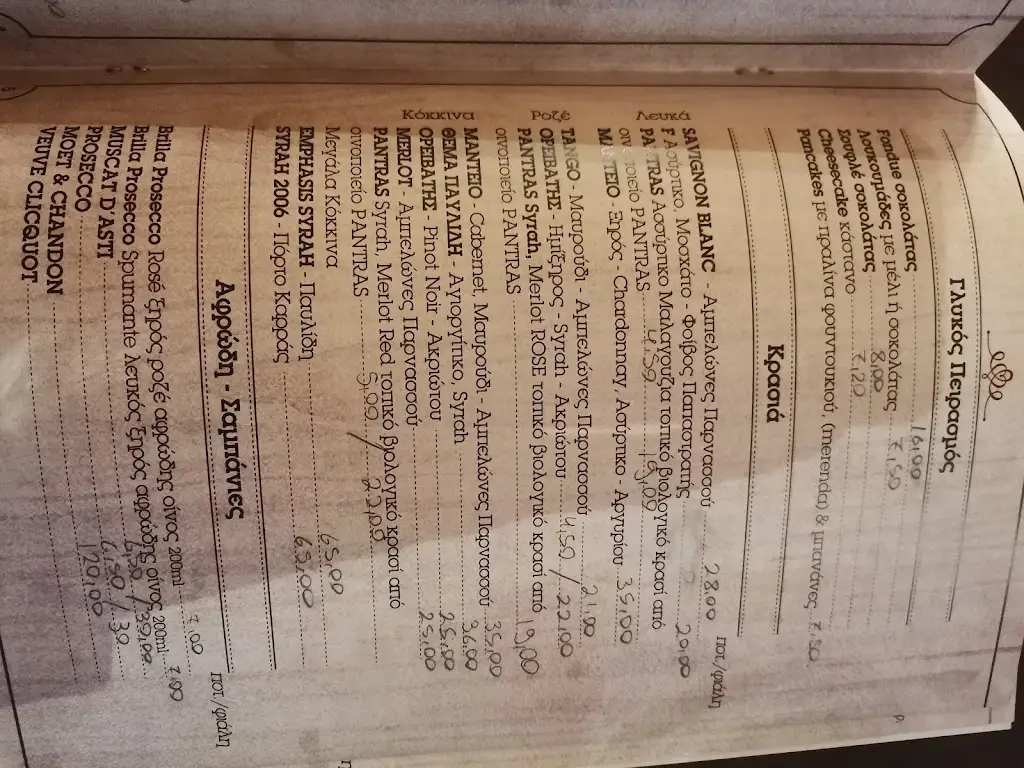 Γλυκός Πειρασμός
Fondue σοκολάτας 16,00
Λουκουμάδες με μέλι ή σοκολάτας 7,50
Σουφλέ σοκολάτας 8,00
Cheesecake κάστανο 7,20
Pancakes με πραλίνα φουντουκιού, (merenda) & μπανάνες 7,50
Κρασιά
ποτ./φιάλη
Λευκά
SAVIGNON BLANC - Αμπελώνες Παρνασσού 28,00
Ασύρτικο, Μοσχάτο - Φοίβος Παπαστρατής 20,00
PANTRAS Ασύρτικο Μαλαγουζιά τοπικό βιολογικό κρασί από
οινοποιείο PANTRAS 4,50 19,00
ΜΑΝΤΕΙΟ - Ξηρός - Chardonnay, Ασύρτικο - Αργυρίου 35,00
Ροζέ
TANGO - Μαυρούδι - Αμπελώνες Παρνασσού 21,00
ΟΡΕΙΒΑΤΗΣ - Ημίξηρος - Syrah - Ακριότου 4,50 / 22,00
PANTRAS Syrah, Merlot ROSE τοπικό βιολογικό κρασί από
οινοποιείο PANTRAS 19,00
Κόκκινα
ΜΑΝΤΕΙΟ - Cabernet, Μαυρούδι - Αμπελώνες Παρνασσού 35,00
ΘΕΜΑ ΠΑΥΛΙΔΗ - Αγιοργίτικο, Syrah 36,00
ΟΡΕΙΒΑΤΗΣ - Pinot Noir - Ακριότου 25,00
MERLOT - Αμπελώνες Παρνασσού 25,00
PANTRAS Syrah, Merlot Red τοπικό βιολογικό κρασί από
οινοποιείο PANTRAS 5,00 / 22,00
Μεγάλα Κόκκινα
EMPHASIS SYRAH - Παυλίδη 65,00
SYRAH 2006 - Πόρτο Καρράς 65,00
Αφρώδη - Σαμπάνιες
ποτ./φιάλη
Brilla Prosecco Rosé ξηρός ροζέ αφρώδης οίνος 200ml 7,00
Brilla Prosecco Spumante λευκός ξηρός αφρώδης οίνος 200ml 7,00
MUSCAT D'ASTI 6,50 / 39,00
PROSECCO 6,50 / 39
MOET & CHANDON 120,00
VEUVE CLICQUOT